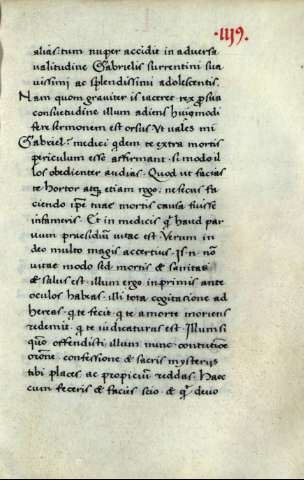 ·iiij9·
alias: tum nuper accidit in adversa
valitudine Gabrielis surrentini sua
vissimi ac splendissimi adolescentis.
Nam quom graviter is iaceret rex p sua
consuetudine illum adiens huiqmodi
fere sermonem est orsus Ut vales mi
Gabriel? medici qdem te extra mortis
periculum esse affirmant · si modo il
los obedienter audias. Quod ut facias
te hortor atq etiam rogo: ne secus fa
ciendo ipē tuae mortis causa fuisse
infameris. Et in medicis q haud par
vum praesidiū vitae est. Verum in
deo multo magis acertius. Is n. nō
vitae modo sed mortis & sanitatis
& salus est. illum ergo inprimis ante
oculos habeas. illi tota cogitatione ad
hereas. q te fecit. q te a morte moriens
redemit. q te iudicaturus est. Illum si
quō offendisti illum nunc contritiōe
orōne confessione & sacris mysteriis
tibi places ac propiciū reddas. Haec
cum feceris & facies scio & qͥ devo